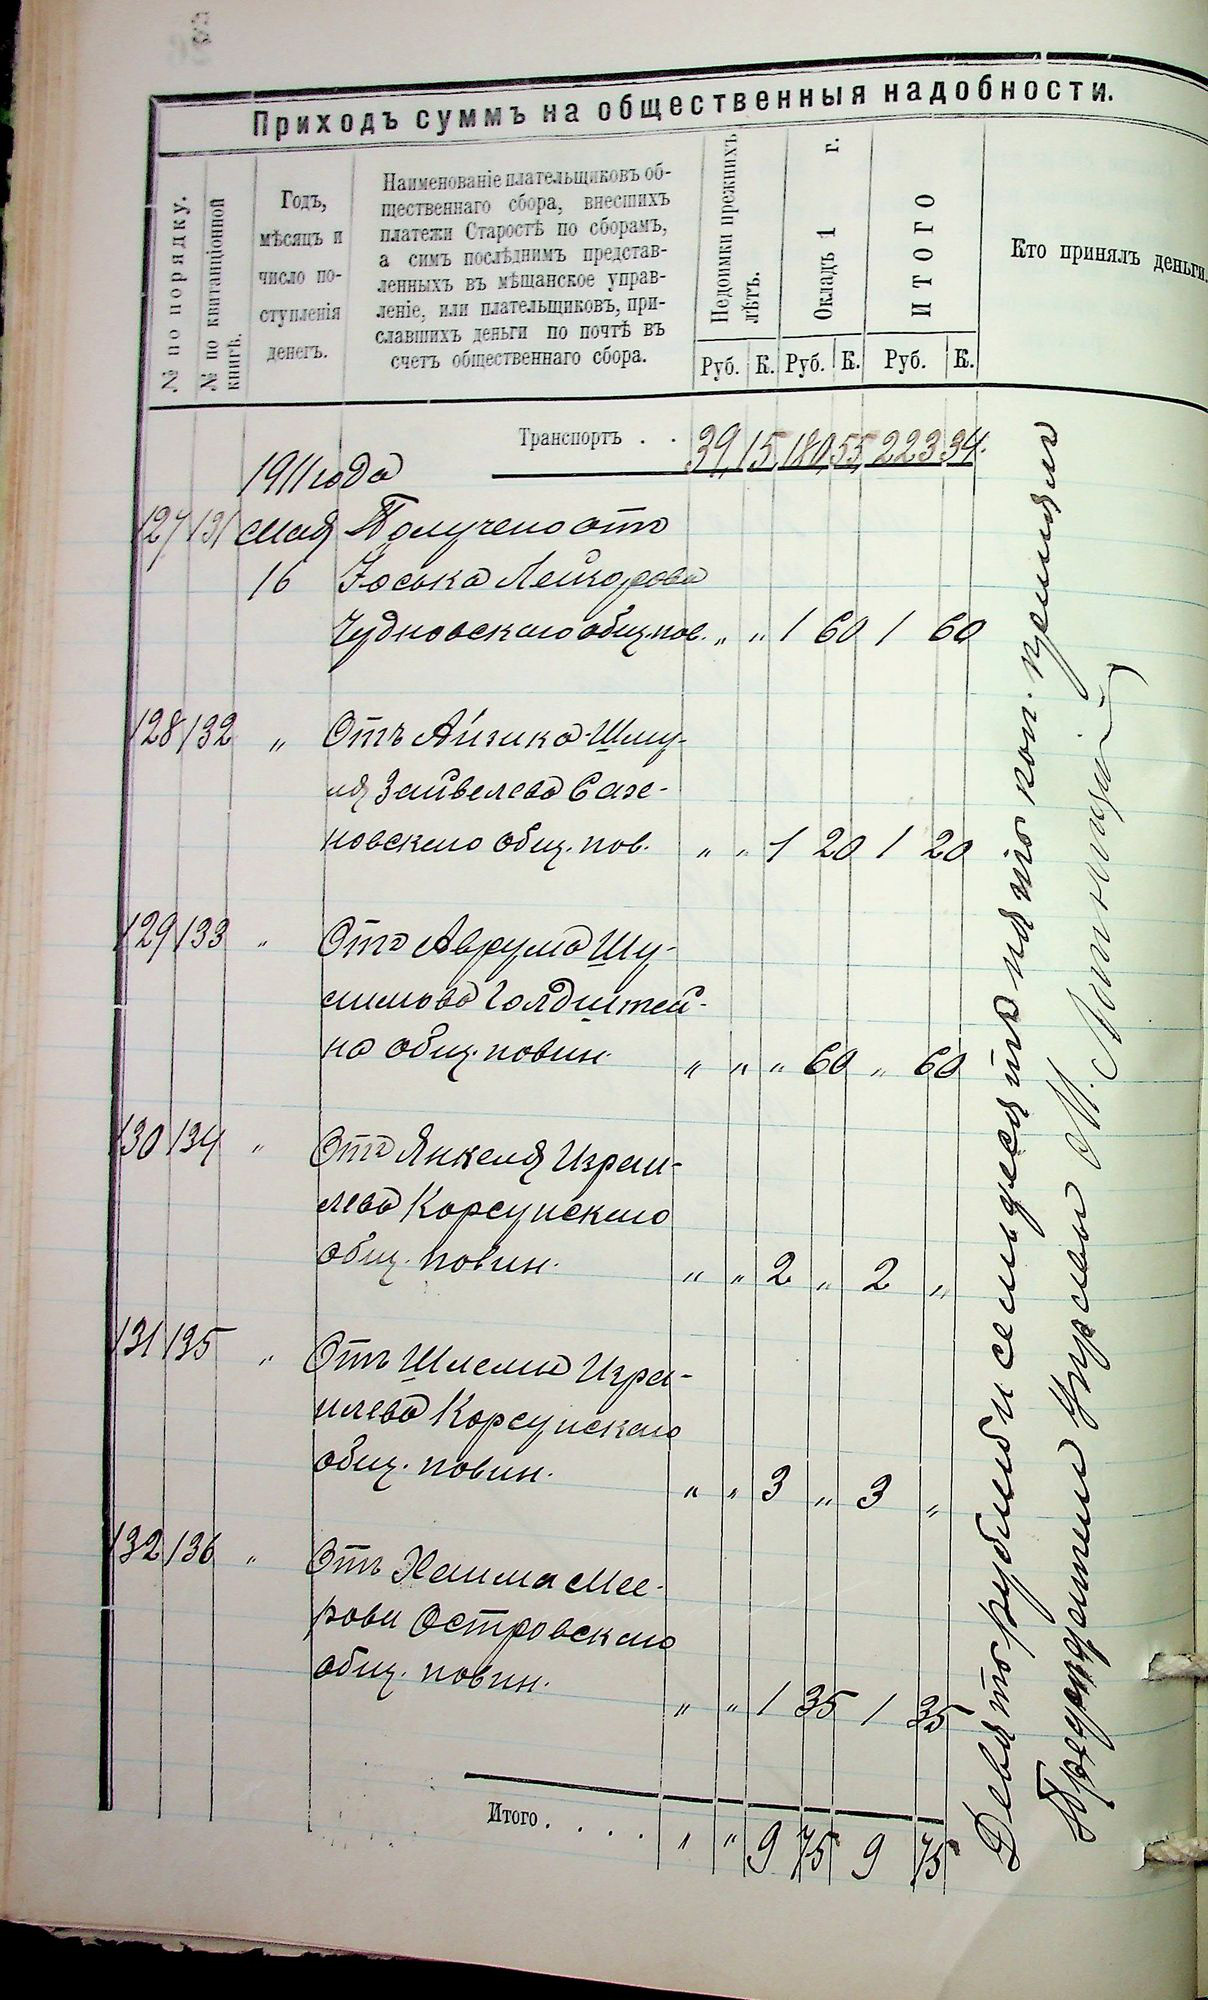 Приходъ суммъ на общественныя надобности.
№ по порядку.
№ по квитанціонной книгѣ.
Годъ,
мѣсяцъ и
число по-
ступленія
денегъ.
Наименованіе плательщиковъ об-
щественнаго сбора, внесшихъ
платежи Старостѣ по сборамъ,
а симъ послѣднимъ представ-
ленныхъ въ мѣщанское управ-
леніе, или плательщиковъ, при-
славшихъ деньги по почтѣ въ
счетъ общественнаго сбора.
Недоимки прежнихъ
лѣтъ.
Окладъ 1 г.
ИТОГО
Кто принялъ деньги.
Руб. К. Руб. К. Руб. К.
Транспортъ . . 39 15 180 55 223 34
1911 года
127 131 мая Получено отъ
16 Іоська Лейзорова
Чудновскаго общ. пов. „ „ 1 60 1 60
128 132 „ Отъ Айзика-Шму-
ля Зайвелева Саже-
новскаго общ. пов. „ „ 1 20 1 20
129 133 „ Отъ Аврума Шу-
лимова Голдштей-
на общ. повин. „ „ „ 60 „ 60
130 134 „ Отъ Янкеля Израи-
лева Корсунскаго
общ. повин. „ „ 2 „ 2 „
131 135 „ Отъ Шлемы Изра-
илева Корсунскаго
общ. повин. „ „ 3 „ 3 „
132 136 „ Отъ Хаима Мее-
рова Островскаго
общ. повин. „ „ 1 35 1 35
Итого . . . . „ „ 9 75 9 75
Девять рублей и семьдесятъ пять коп. принялъ
М.